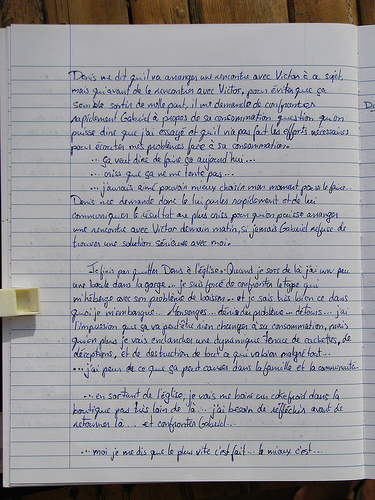 Denis me dit qu'il va arranger une rencontre avec Victor à ce sujet,
mais qu'avant de le rencontrer avec Victor, pour éviter que ça
semble sortir de nulle part, il me demande de confronter
rapidement Gabriel à propos de sa consommation question qu'on
puisse dire que j'ai essayé et qu'il n'a pas fait les efforts nécessaires
pour écouter mes problèmes face à sa consommation.
... ça veut dire de faire ça aujourd'hui...
... criss que ça ne me tente pas...
... j'aurais aimé pouvoir mieux choisir mon moment pour le faire...
Denis me demande donc de lui parler rapidement et de lui
communiquer le résultat au plus criss pour qu'on puisse arranger
une rencontre avec Victor demain matin, si jamais Gabriel refuse de
trouver une solution sérieuse avec moi.
Je finis par quitter Denis à l'église. Quand je sors de là j'ai un peu
une boule dans la gorge... je suis forcé de confronter le type qui
m'héberge avec son problème de boisson... et je sais très bien ce dans
quoi je m'embarque... Mensonges... déni du problème... détours... j'ai
l'impression que ça va peut-être rien changer à sa consommation, mais
qu'en plus je vais enclencher une dynamique tenace de cachettes, de
déceptions, et de destruction de tout ce qui va bien malgré tout...
... j'ai peur de ce que ça peut causer dans la famille et la communauté.
... en sortant de l'église, je vais me boire un coke froid dans la
boutique pas très loin de là... j'ai besoin de réfléchir avant de
retourner là... et confronter Gabriel...
... moi je me dis que le plus vite c'est fait... le mieux c'est...